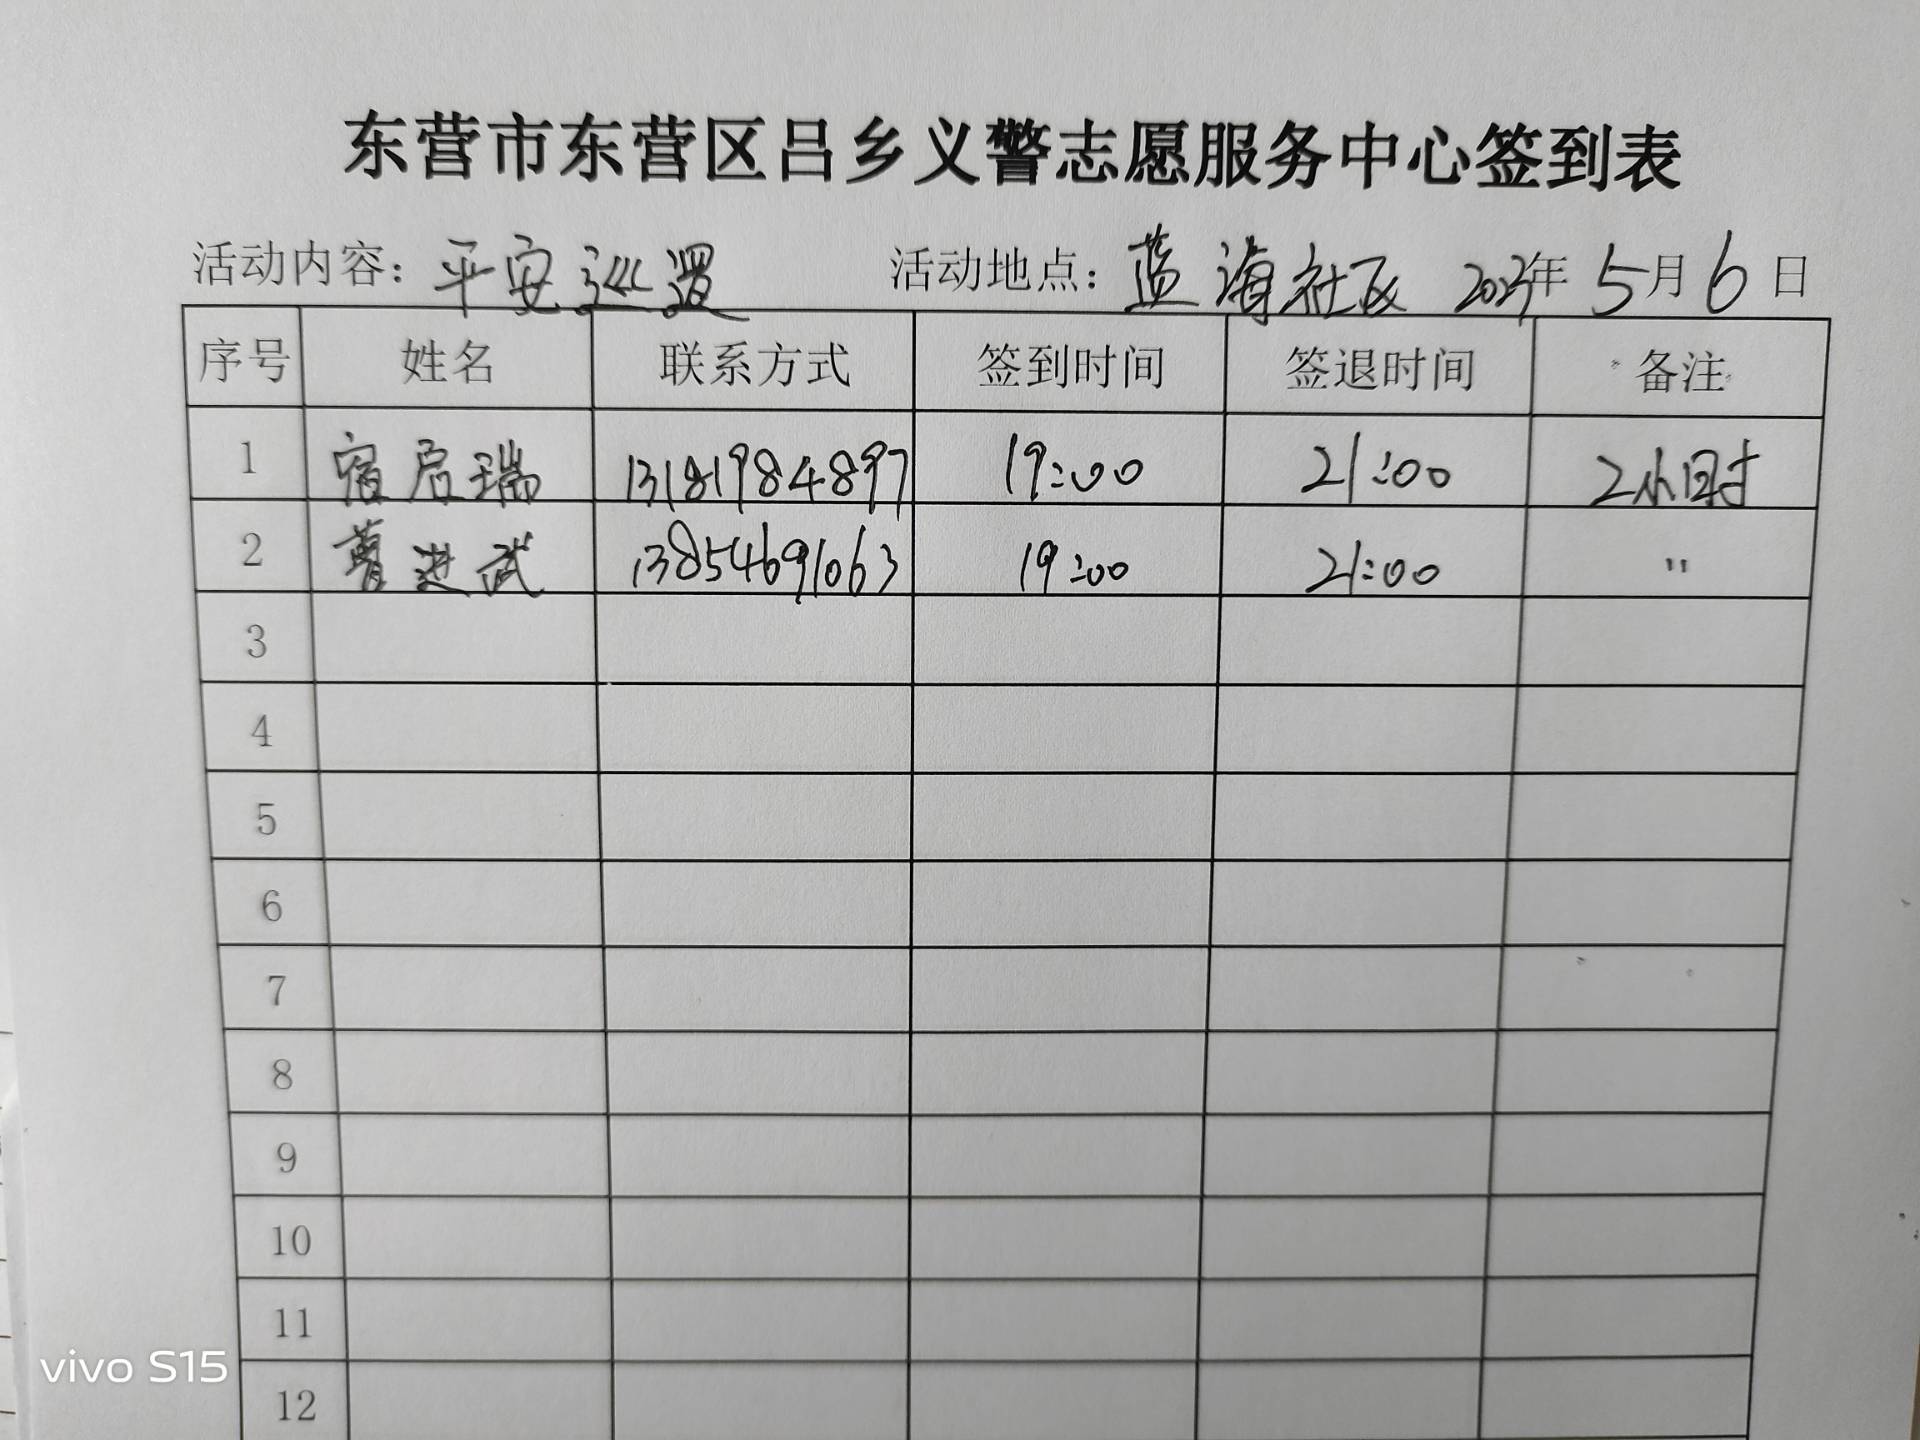 东营市东营区吕乡义警志愿服务中心签到表
活动内容：平安巡逻 活动地点：蓝海社区 2023年 5月 6日
序号 姓名 联系方式 签到时间 签退时间 备注
1 宿启瑞 13181984897 19:00 21:00 2小时
2 曹进武 13854691063 19:00 21:00 "
3
4
5
6
7
8
9
10
11
12
vivo S15